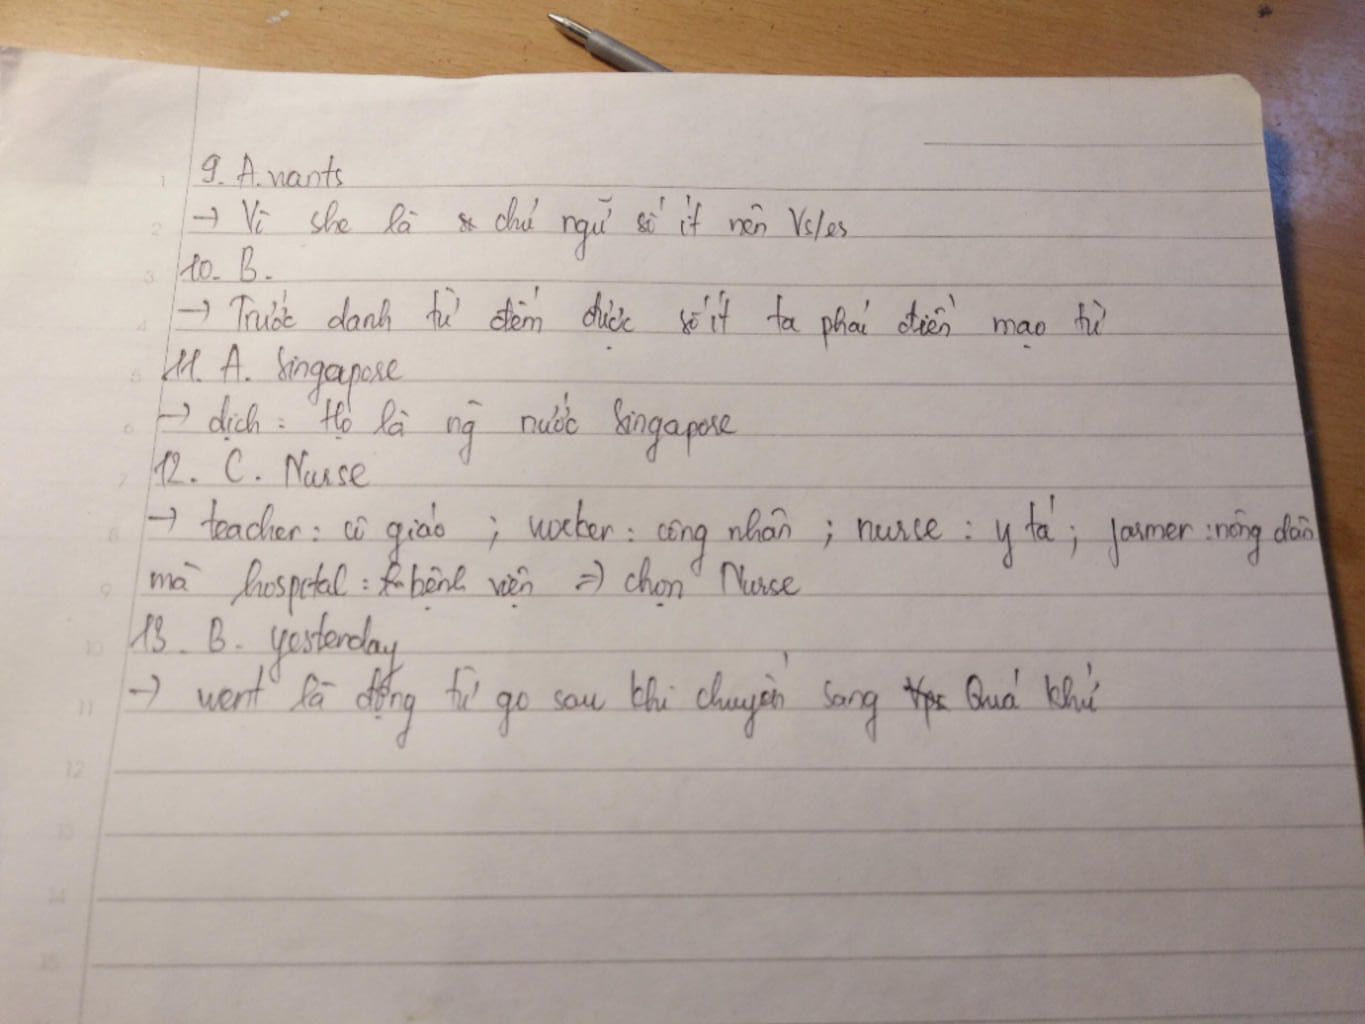 9. A. wants
→ Vì she là chủ ngữ số ít nên Vs/es
10. B.
→ Trước danh từ đếm được số ít ta phải điền mạo từ
11. A. Singapore
→ dịch: Họ là ng nước Singapore
12. C. Nurse
→ teacher: cô giáo ; worker: công nhân ; nurse : y tá ; farmer : nông dân
mà hospital : bệnh viện => chọn Nurse
13. B. yesterday
→ went là động từ go sau khi chuyển sang Quá khứ
1
2
3
4
5
6
7
8
9
10
11
12
13
14
15